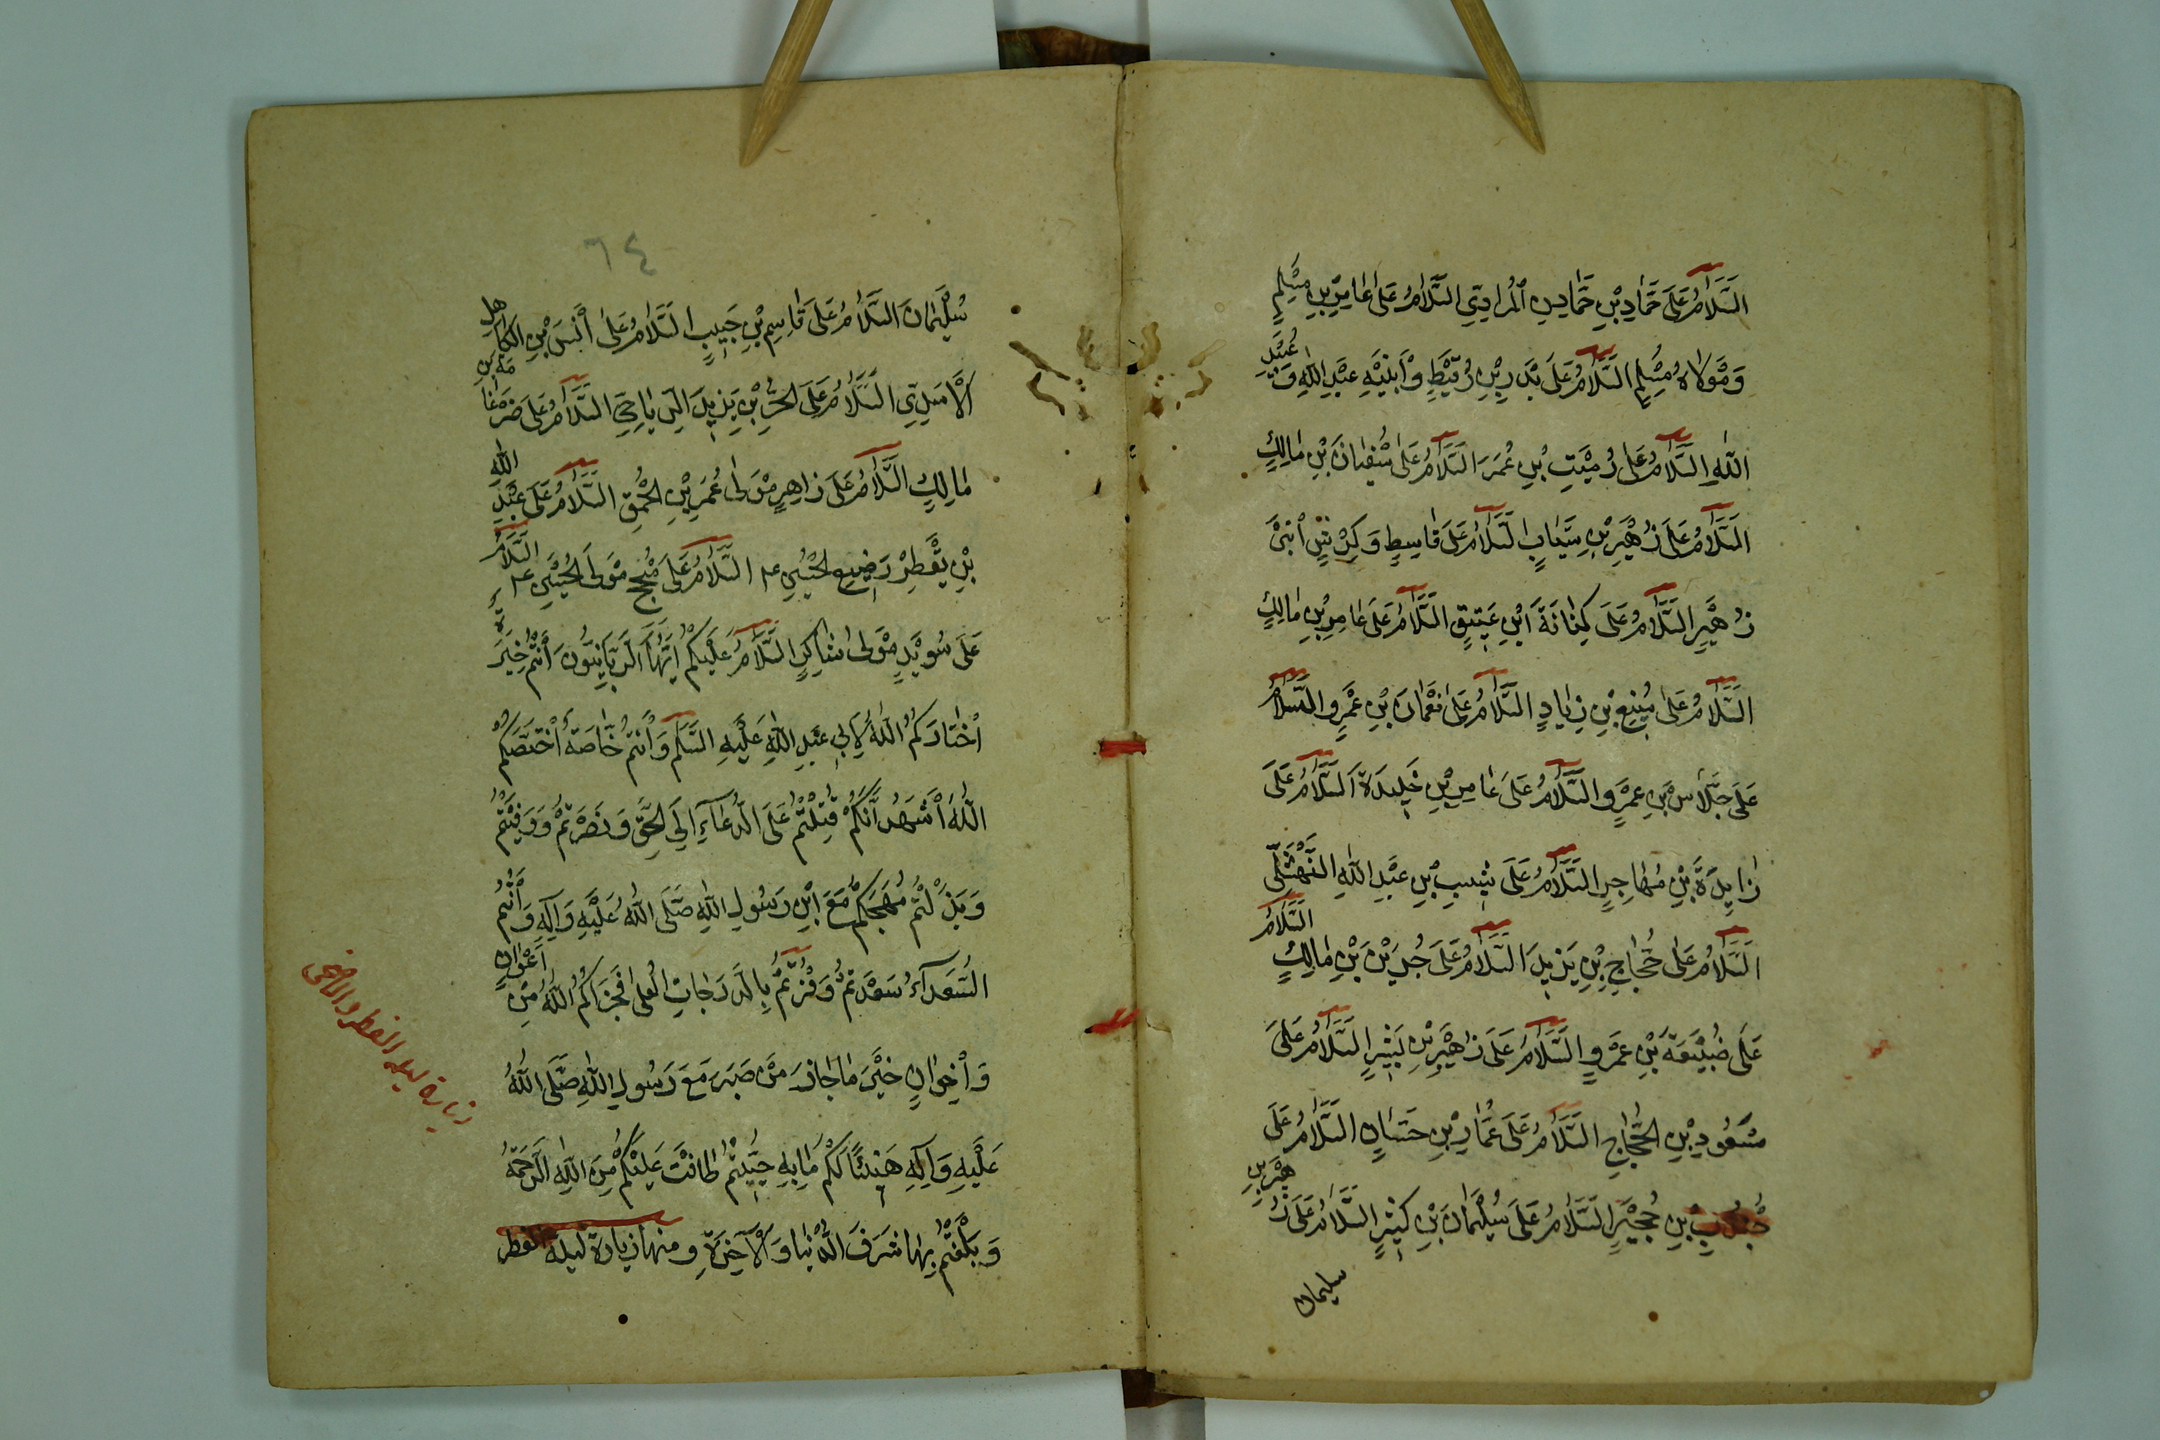 السَّلَامُ عَلَى حَمَّادِ بْنِ حَمَّادِ الْمُرَادِيِّ السَّلَامُ عَلَى عَامِرِ بْنِ مُسْلِمٍ
وَمَوْلَاهُ مُسْلِمٍ السَّلَامُ عَلَى بَدْرِ بْنِ رُقَيْطٍ وَابْنَيْهِ عَبْدِ اللّٰهِ وَعُبَيْدِ
اللّٰهِ السَّلَامُ عَلَى رُمَيْثِ بْنِ عُمَرَ السَّلَامُ عَلَى سُفْيَانَ بْنِ مَالِكٍ
السَّلَامُ عَلَى زُهَيْرِ بْنِ سَيَّابٍ السَّلَامُ عَلَى قَاسِطٍ وَكِرْشٍ ابْنَيْ
زُهَيْرٍ السَّلَامُ عَلَى كِنَانَةَ ابْنِ عَتِيقٍ السَّلَامُ عَلَى عَامِرِ بْنِ مَالِكٍ
السَّلَامُ عَلَى مَنِيعِ بْنِ زِيَادٍ السَّلَامُ عَلَى نُعْمَانَ بْنِ عَمْرٍو السَّلَامُ
عَلَى جَلَّاسِ بْنِ عَمْرٍو السَّلَامُ عَلَى عَامِرِ بْنِ خُلَيْدَةَ السَّلَامُ عَلَى
زَايِدَةَ بْنِ مُهَاجِرٍ السَّلَامُ عَلَى شَبِيبِ بْنِ عَبْدِ اللّٰهِ النَّهْشَلِيِّ
السَّلَامُ عَلَى حَجَّاجِ بْنِ يَزِيدَ السَّلَامُ عَلَى جُوَيْنِ بْنِ مَالِكٍ السَّلَامُ
عَلَى ضُبَيْعَةَ بْنِ عَمْرٍو السَّلَامُ عَلَى زُهَيْرِ بْنِ بَشِيرٍ السَّلَامُ عَلَى
مَسْعُودِ بْنِ الْحَجَّاجِ السَّلَامُ عَلَى عَمَّارِ بْنِ حَسَّانَ السَّلَامُ عَلَى
جُنْدُبِ بْنِ حُجَيْرٍ السَّلَامُ عَلَى سُلَيْمَانَ بْنِ كَثِيرٍ السَّلَامُ عَلَى زُهَيْرِ بْنِ
سليمان
٦٤
سُلَيْمَانَ السَّلَامُ عَلَى قَاسِمِ بْنِ حَبِيبٍ السَّلَامُ عَلَى أَنَسِ بْنِ الْكَاهِلِ
الْأَسَدِيِّ السَّلَامُ عَلَى الْحُرِّ بْنِ يَزِيدَ الرِّيَاحِيِّ السَّلَامُ عَلَى ضَرْغَامَةَ بْنِ
مَالِكٍ السَّلَامُ عَلَى زَاهِرٍ مَوْلَى عُمَرِ بْنِ الْحَمْقِ السَّلَامُ عَلَى عَبْدِ اللّٰهِ
بْنِ يَقْطُرَ رَضِيعِ الْحُسَيْنِ عـ السَّلَامُ عَلَى مُنْجِحٍ مَوْلَى الْحُسَيْنِ عـ السَّلَامُ
عَلَى سُوَيْدٍ مَوْلَى شَاكِرٍ السَّلَامُ عَلَيْكُمْ أَيُّهَا الرَّبَّانِيُّونَ أَنْتُمْ خِيَرَةٌ
اخْتَارَكُمُ اللّٰهُ لِأَبِي عَبْدِ اللّٰهِ عَلَيْهِ السَّلَمُ وَأَنْتُمْ خَاصَّةٌ اخْتَصَّكُمُ
اللّٰهُ أَشْهَدُ أَنَّكُمْ قُتِلْتُمْ عَلَى الدُّعَآءِ إِلَى الْحَقِّ وَنَصَرْتُمْ وَوَفَيْتُمْ
وَبَذَلْتُمْ مُهَجَكُمْ مَعَ ابْنِ رَسُولِ اللّٰهِ صَلَّى اللّٰهُ عَلَيْهِ وَآلِهِ وَأَنْتُمُ
السُّعَدَآءُ سَعِدْتُمْ وَفُزْتُمْ بِالدَّرَجَاتِ الْعُلَى فَجَزَاكُمُ اللّٰهُ مِنْ أَعْوَانٍ
وَإِخْوَانٍ خَيْرَ مَا جَازَ مَنْ صَبَرَ مَعَ رَسُولِ اللّٰهِ صَلَّى اللّٰهُ
عَلَيْهِ وَآلِهِ هَنِيئًا لَكُمْ مَا بِهِ حُيِّيتُمْ طَافَتْ عَلَيْكُمْ مِنَ اللّٰهِ الرَّحْمَةُ
وَبَلَغْتُمْ بِهَا شَرَفَ الدُّنْيَا وَالْآخِرَةِ ومنها زيارة ليلة الفطر
زيارة ليلة الفطر والاضحى